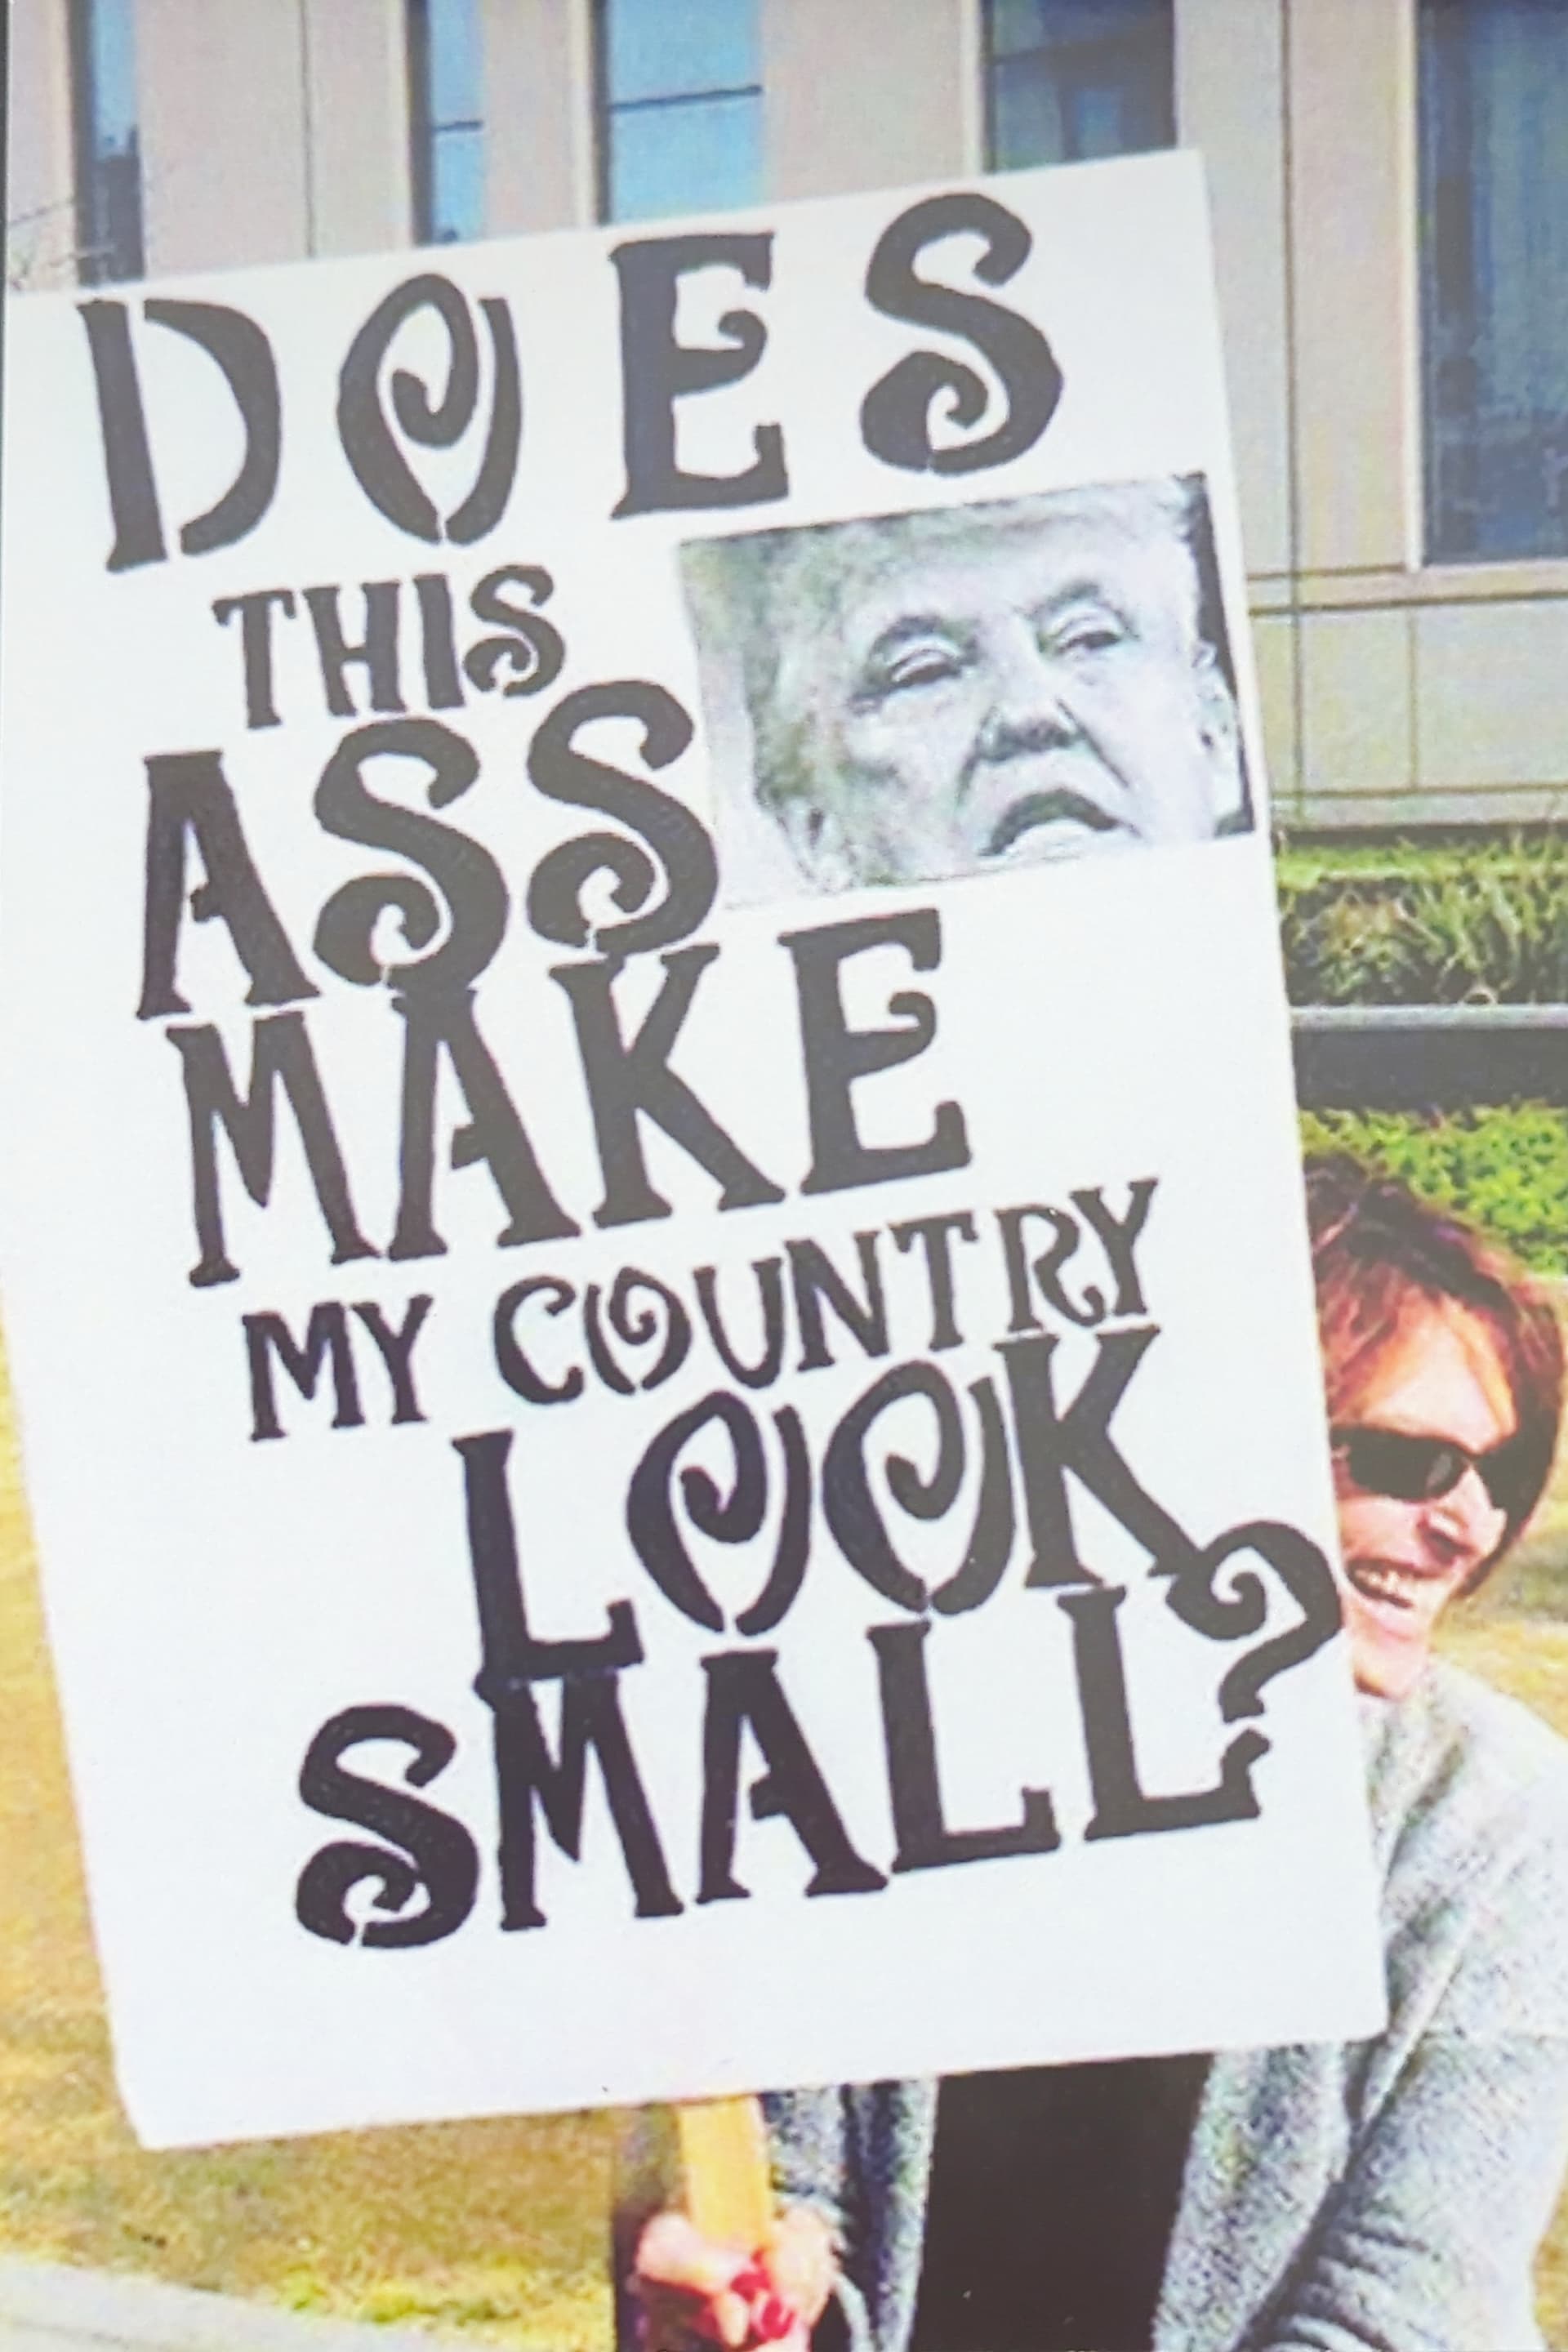 DOES
THIS
ASS
MAKE
MY COUNTRY
LOOK
SMALL?